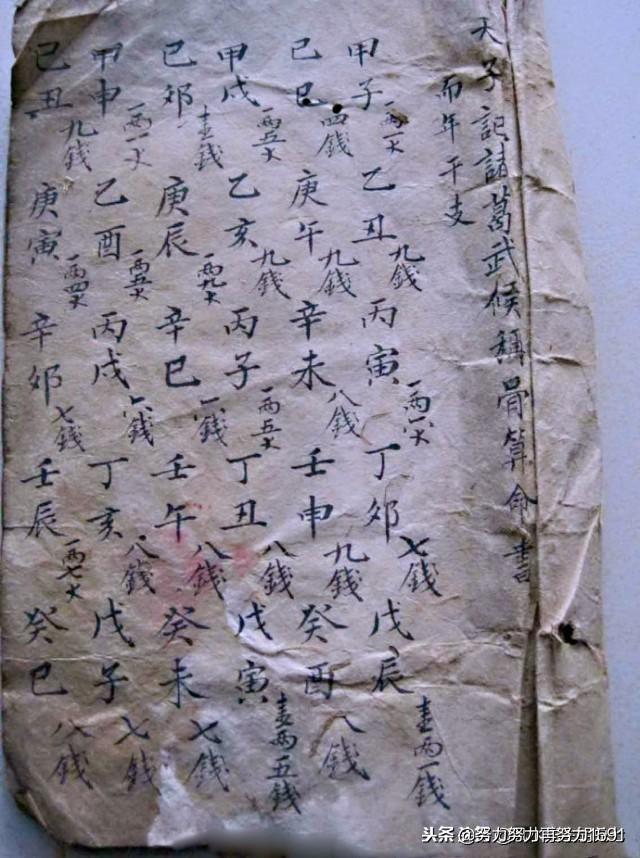 天子記諸葛武候稱骨算命書
而年干支
甲子 一两一 乙丑 九錢 丙寅 一两八 丁卯 七錢 戊辰 壹两一錢
己巳 四錢 庚午 九錢 辛未 八錢 壬申 九錢 癸酉 八錢
甲戌 一两五 乙亥 九錢 丙子 一两五 丁丑 八錢 戊寅 壹两五錢
己卯 壹錢 庚辰 一两九 辛巳 錢 壬午 八錢 癸未 七錢
甲申 一两一 乙酉 一两五 丙戌 六錢 丁亥 八錢 戊子 七錢
己丑 九錢 庚寅 一两四 辛卯 七錢 壬辰 一两七 癸巳 八錢
头条 @努力努力再努力1591